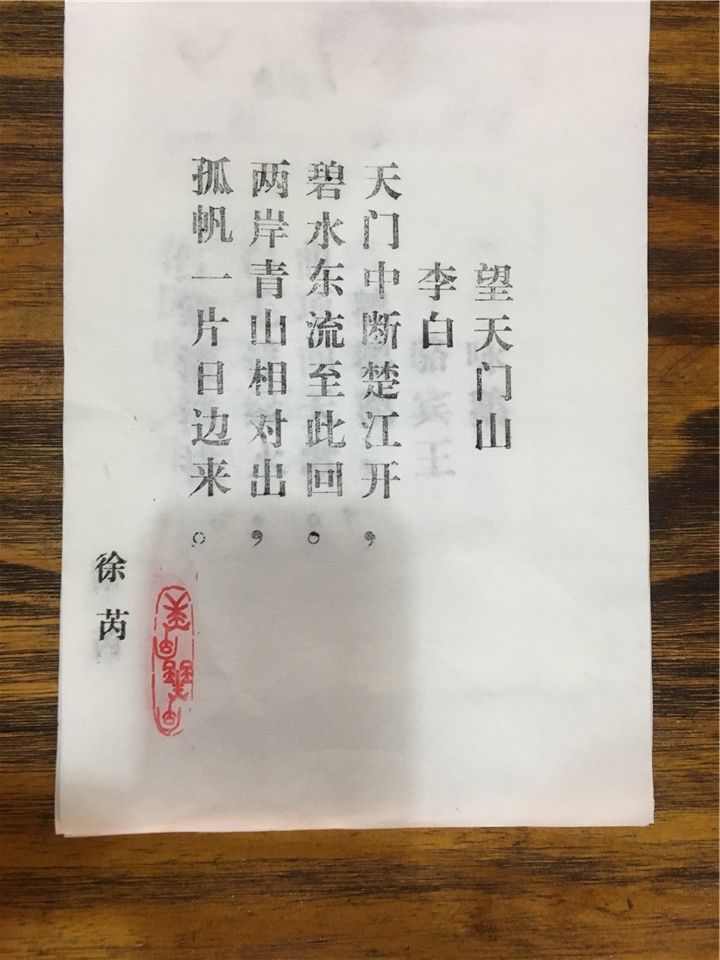 望天门山
李白
天门中断楚江开，
碧水东流至此回。
两岸青山相对出，
孤帆一片日边来。
徐芮